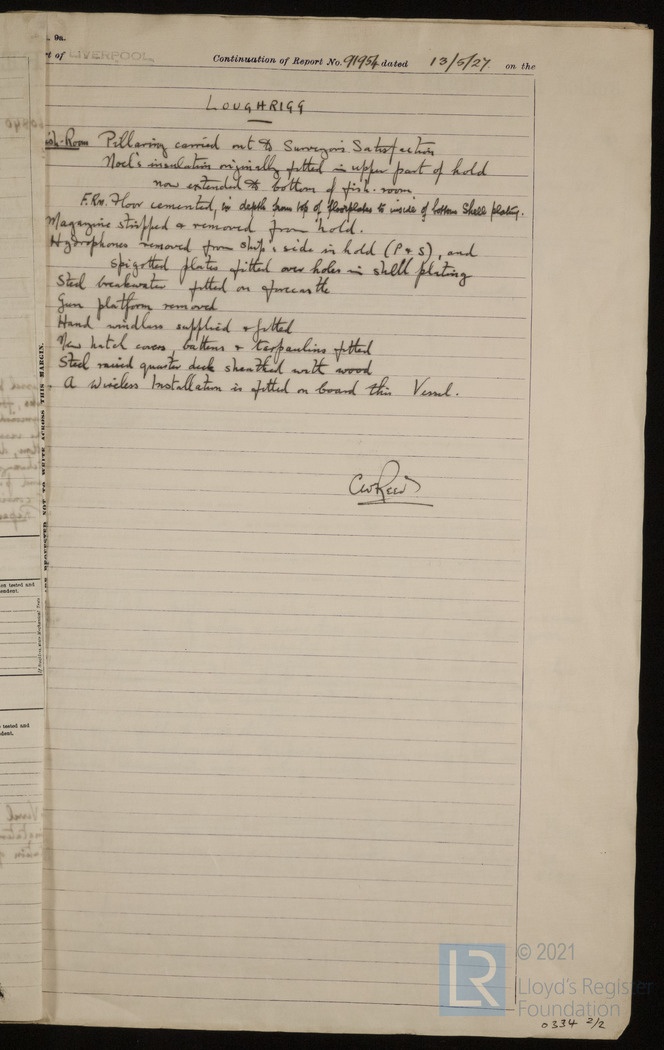 9a.
t of LIVERPOOL Continuation of Report No. 91954 dated 13/5/27. on the
LOUGHRIGG
ish-Room Pillaring carried out to Surveyors Satisfaction
Noel's insulation originally fitted in upper part of hold
now extended to bottom of fish-room
F.Rm. Floor cemented, in depth from top of floorplates to inside of bottom Shell plating.
Magazine stripped & removed from hold.
Hydrophones removed from Ship's side in hold (P & S), and
spigotted plates fitted over holes in shell plating
Steel breakwater fitted on forecastle
Gun platform removed
Hand windlass supplied & fitted
New hatch covers, battens & tarpaulins fitted
Steel raised quarter deck sheathed with wood
A Wireless Installation is fitted on board this Vessel.
CW Reed
NOT TO WRITE ACROSS THIS MARGIN.
tested and
tested and
LR
© 2021
Lloyd's Register
Foundation
0334 2/2